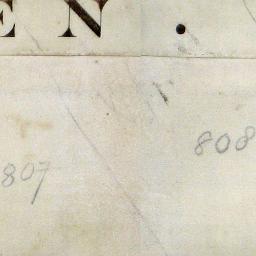 EN.
808
807